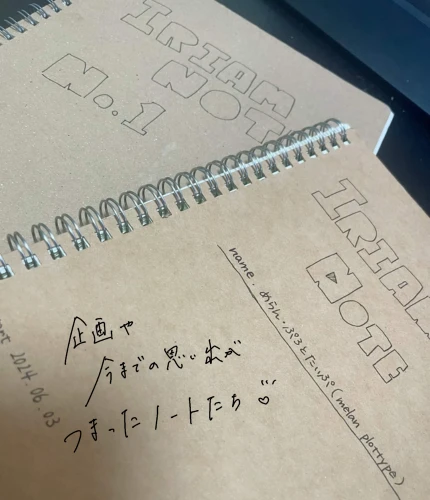 IRIAM
NOTE
No.1
IRIAM
NOTE
name. めらん・ぷろとたいぷ(melan plottype)
2024.06.03
企画や
今までの思い出が
つまったノートたち